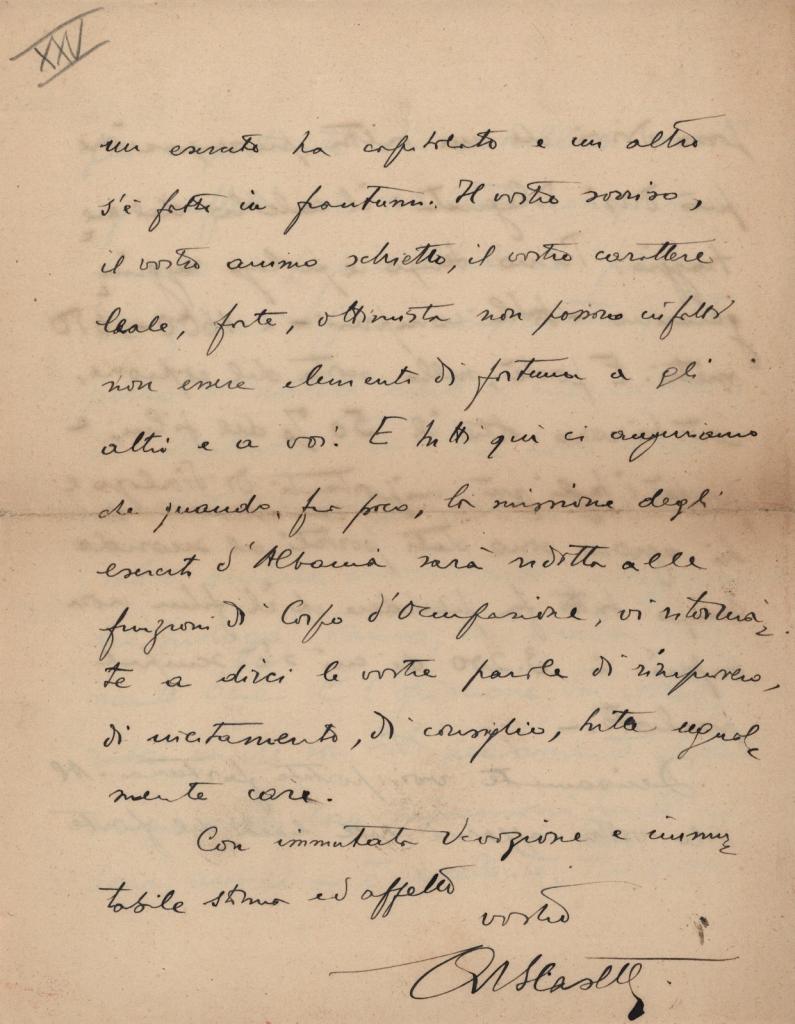 XXV
un esercito ha capitolato e un altro
s'è fatto in frantumi. Il vostro sorriso,
il vostro animo schietto, il vostro carattere
leale, forte, ottimista non possono infatti
non essere elementi di fortuna a gli
altri e a voi. E tutti qui ci auguriamo
che quando, fra poco, la missione degli
eserciti d'Albania sarà ridotta alle
funzioni di Corpo d'Occupazione, vi ritornia-
te a dirci le vostre parole di rimprovero,
di incitamento, di consiglio, tutte egual-
mente care.
Con immutata devozione e immu-
tabile stima ed affetto
vostro